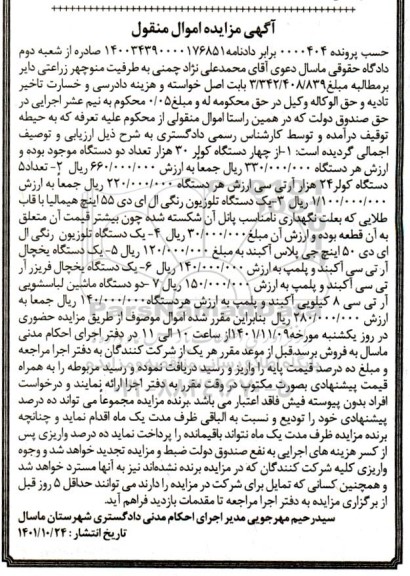 آگهی مزایده اموال منقول
حسب پرونده ۰۰۰۰۴۰۴ برابر دادنامه ۱۴۰۰۳۴۳۹۰۰۰۰۱۷۶۸۵۱ صادره از شعبه دوم
دادگاه حقوقی ماسال دعوی آقای محمدعلی نژاد چمنی به طرفیت منوچهر زراعتی دایر
برمطالبه مبلغ ۳/۳۴۲/۴۰۸/۸۳۹ بابت اصل خواسته و هزینه دادرسی و خسارت تاخیر
تادیه و حق الوکاله وکیل در حق محکومه له و مبلغ ۰/۵ محکوم به نیم عشر اجرایی در
حق صندوق دولت که در همین راستا اموال منقولی از محکوم علیه تعرفه که به حیطه
توقیف درآمده و توسط کارشناس رسمی دادگستری به شرح ذیل ارزیابی و توصیف
اجمالی گردیده است: ۱-از چهار دستگاه کولر ۳۰ هزار تعداد دو دستگاه موجود بوده و
ارزش هر دستگاه ۳۳۰/۰۰۰/۰۰۰ ریال جمعا به ارزش ۶۶۰/۰۰۰/۰۰۰ ریال ۲-تعداد۵
دستگاه کولر ۲۴ هزار آرتی سی ارزش هر دستگاه ۲۲۰/۰۰۰/۰۰۰ ریال جمعا به ارزش
۱/۱۰۰/۰۰۰/۰۰۰ ریال ۳-یک دستگاه تلوزیون رنگی ال ای دی ۵۵ اینچ هیمالیا با قاب
طلایی که بعلت نگهداری نامناسب پانل آن شکسته شده چون بیشتر قیمت آن متعلق
به آن قطعه بوده و ارزش آن مبلغ ۳۰/۰۰۰/۰۰۰ ریال ۴- یک دستگاه تلوزیون رنگی ال
ای دی ۵۰ اینچ جی پلاس آکبند به مبلغ ۱۲۰/۰۰۰/۰۰۰ ریال ۵-یک دستگاه یخچال
آر تی سی آکبند و پلمپ به ارزش ۱۴۰/۰۰۰/۰۰۰ ریال ۶- یک دستگاه یخچال فریزر آر
تی سی آکبند و پلمپ به ارزش ۱۵۰/۰۰۰/۰۰۰ ریال ۷-دو دستگاه ماشین لباسشویی
آر تی سی ۸ کیلویی آکبند و پلمپ به ارزش هردستگاه ۱۴۰/۰۰۰/۰۰۰ ریال جمعا به
ارزش ۲۸۰/۰۰۰/۰۰۰ ریال بنابراین مقرر شده اموال موصوف از طریق مزایده حضوری
در روز یکشنبه مورخه ۱۴۰۱/۱۱/۰۹ از ساعت ۱۰ الی ۱۱ در دفتر اجرای احکام مدنی
ماسال به فروش برسد.قبل از موعد مقرر هر یک از شرکت کنندگان به دفتر اجرا مراجعه
و مبلغ ده درصد قیمت پایه را واریز و رسید دریافت نموده و رسید مربوطه را به همراه
قیمت پیشنهادی بصورت مکتوب در وقت مقرر به دفتر اجرا ارائه نمایند و درخواست
افراد بدون پیوسته فیش فاقد اعتبار می باشد. برنده مزایده مجموعا می تواند ده درصد
پیشنهادی خود را تودیع و نسبت به الباقی ظرف مدت یک ماه اقدام نماید و چنانچه
برنده مزایده ظرف مدت یک ماه نتواند باقیمانده را پرداخت نماید ده درصد واریزی پس
از کسر هزینه های اجرایی به نفع صندوق دولت ضبط و مزایده تجدید خواهد شد و وجوه
واریزی کلیه شرکت کنندگان که در مزایده برنده نشده‌اند نیز به آنها مسترد خواهد شد
و همچنین کسانی که تمایل برای شرکت در مزایده را دارند می توانند حداقل ۵ روز قبل
از برگزاری مزایده به دفتر اجرا مراجعه تا مقدمات بازدید فراهم آید.
سیدرحیم مهرجویی مدیر اجرای احکام مدنی دادگستری شهرستان ماسال
تاریخ انتشار : ۱۴۰۱/۱۰/۲۴